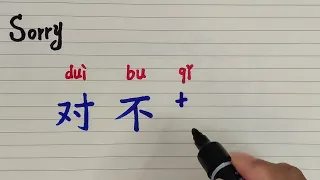 Sorry
duì bu qǐ
对 不